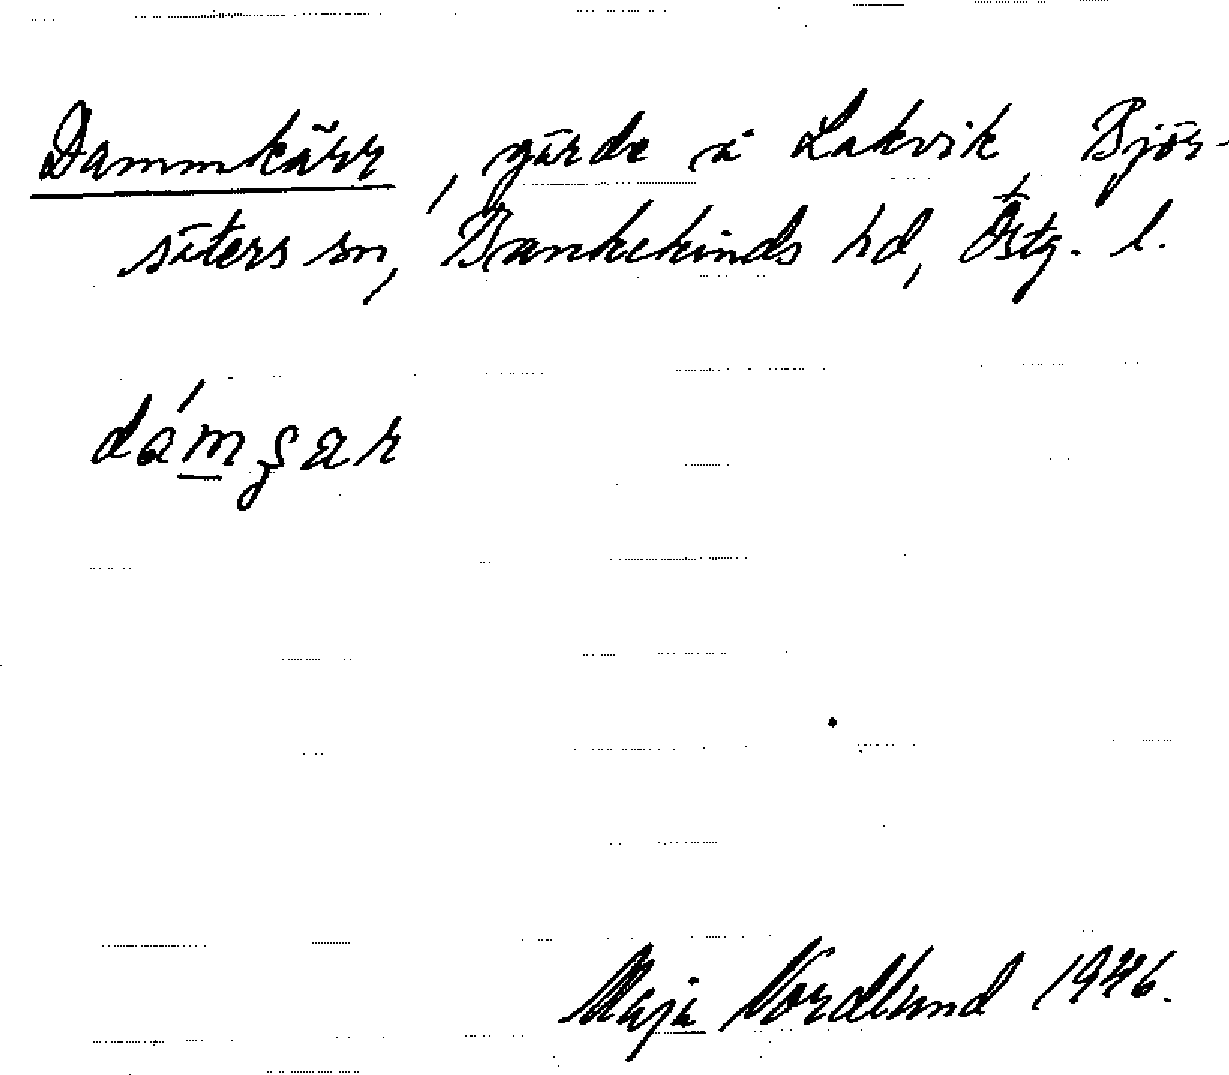 Dammkärr, gärde å Lakvik, Björ-
säters sn, Bankekinds hd, Östg. l.
Maja Nordlund 1946.